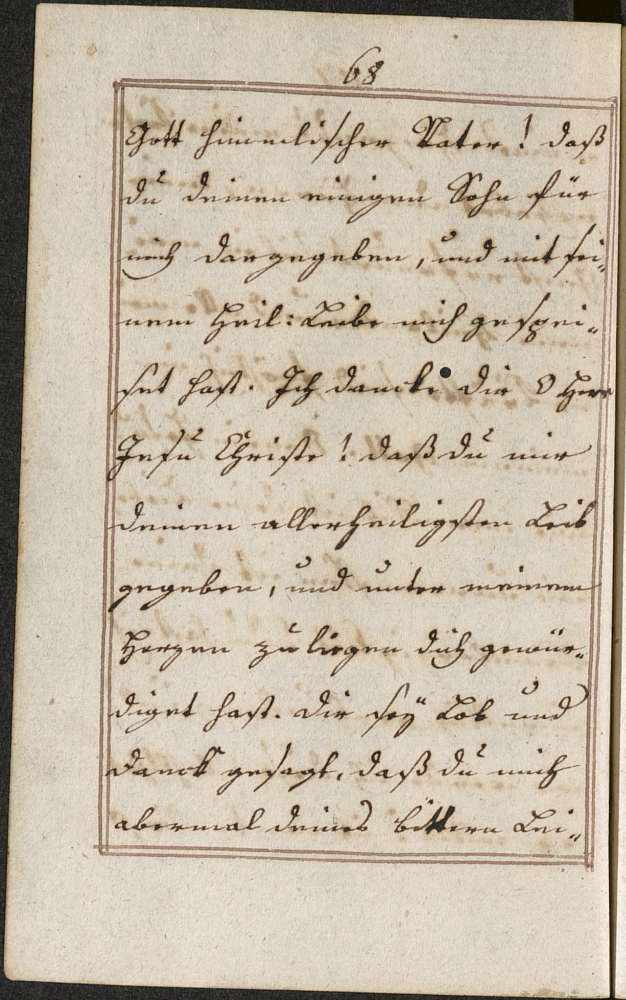 68
Gott himmlischer Vater! daß
du deinen einigen Sohn für
mich dargegeben, und mit sei„
nem Heil: Leibe mich gespei„
set hast. Ich dancke dir O Herr
Jesu Christe! daß du mir
deinen allerheiligsten Leib
gegeben, und unter meinem
Herzen zu liegen dich gewür„
diget hast. Dir seÿ Lob und
Danck gesagt, daß du mich
abermal deines bittern Lei„